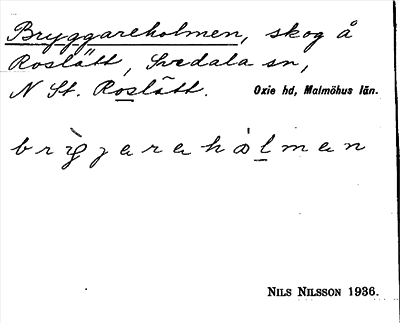 Bryggareholmen, skog å
Roslätt, Svedala sn,
N St. Roslätt. Oxie hd, Malmöhus län.
brìg̀jarahòlman
NILS NILSSON 1936.